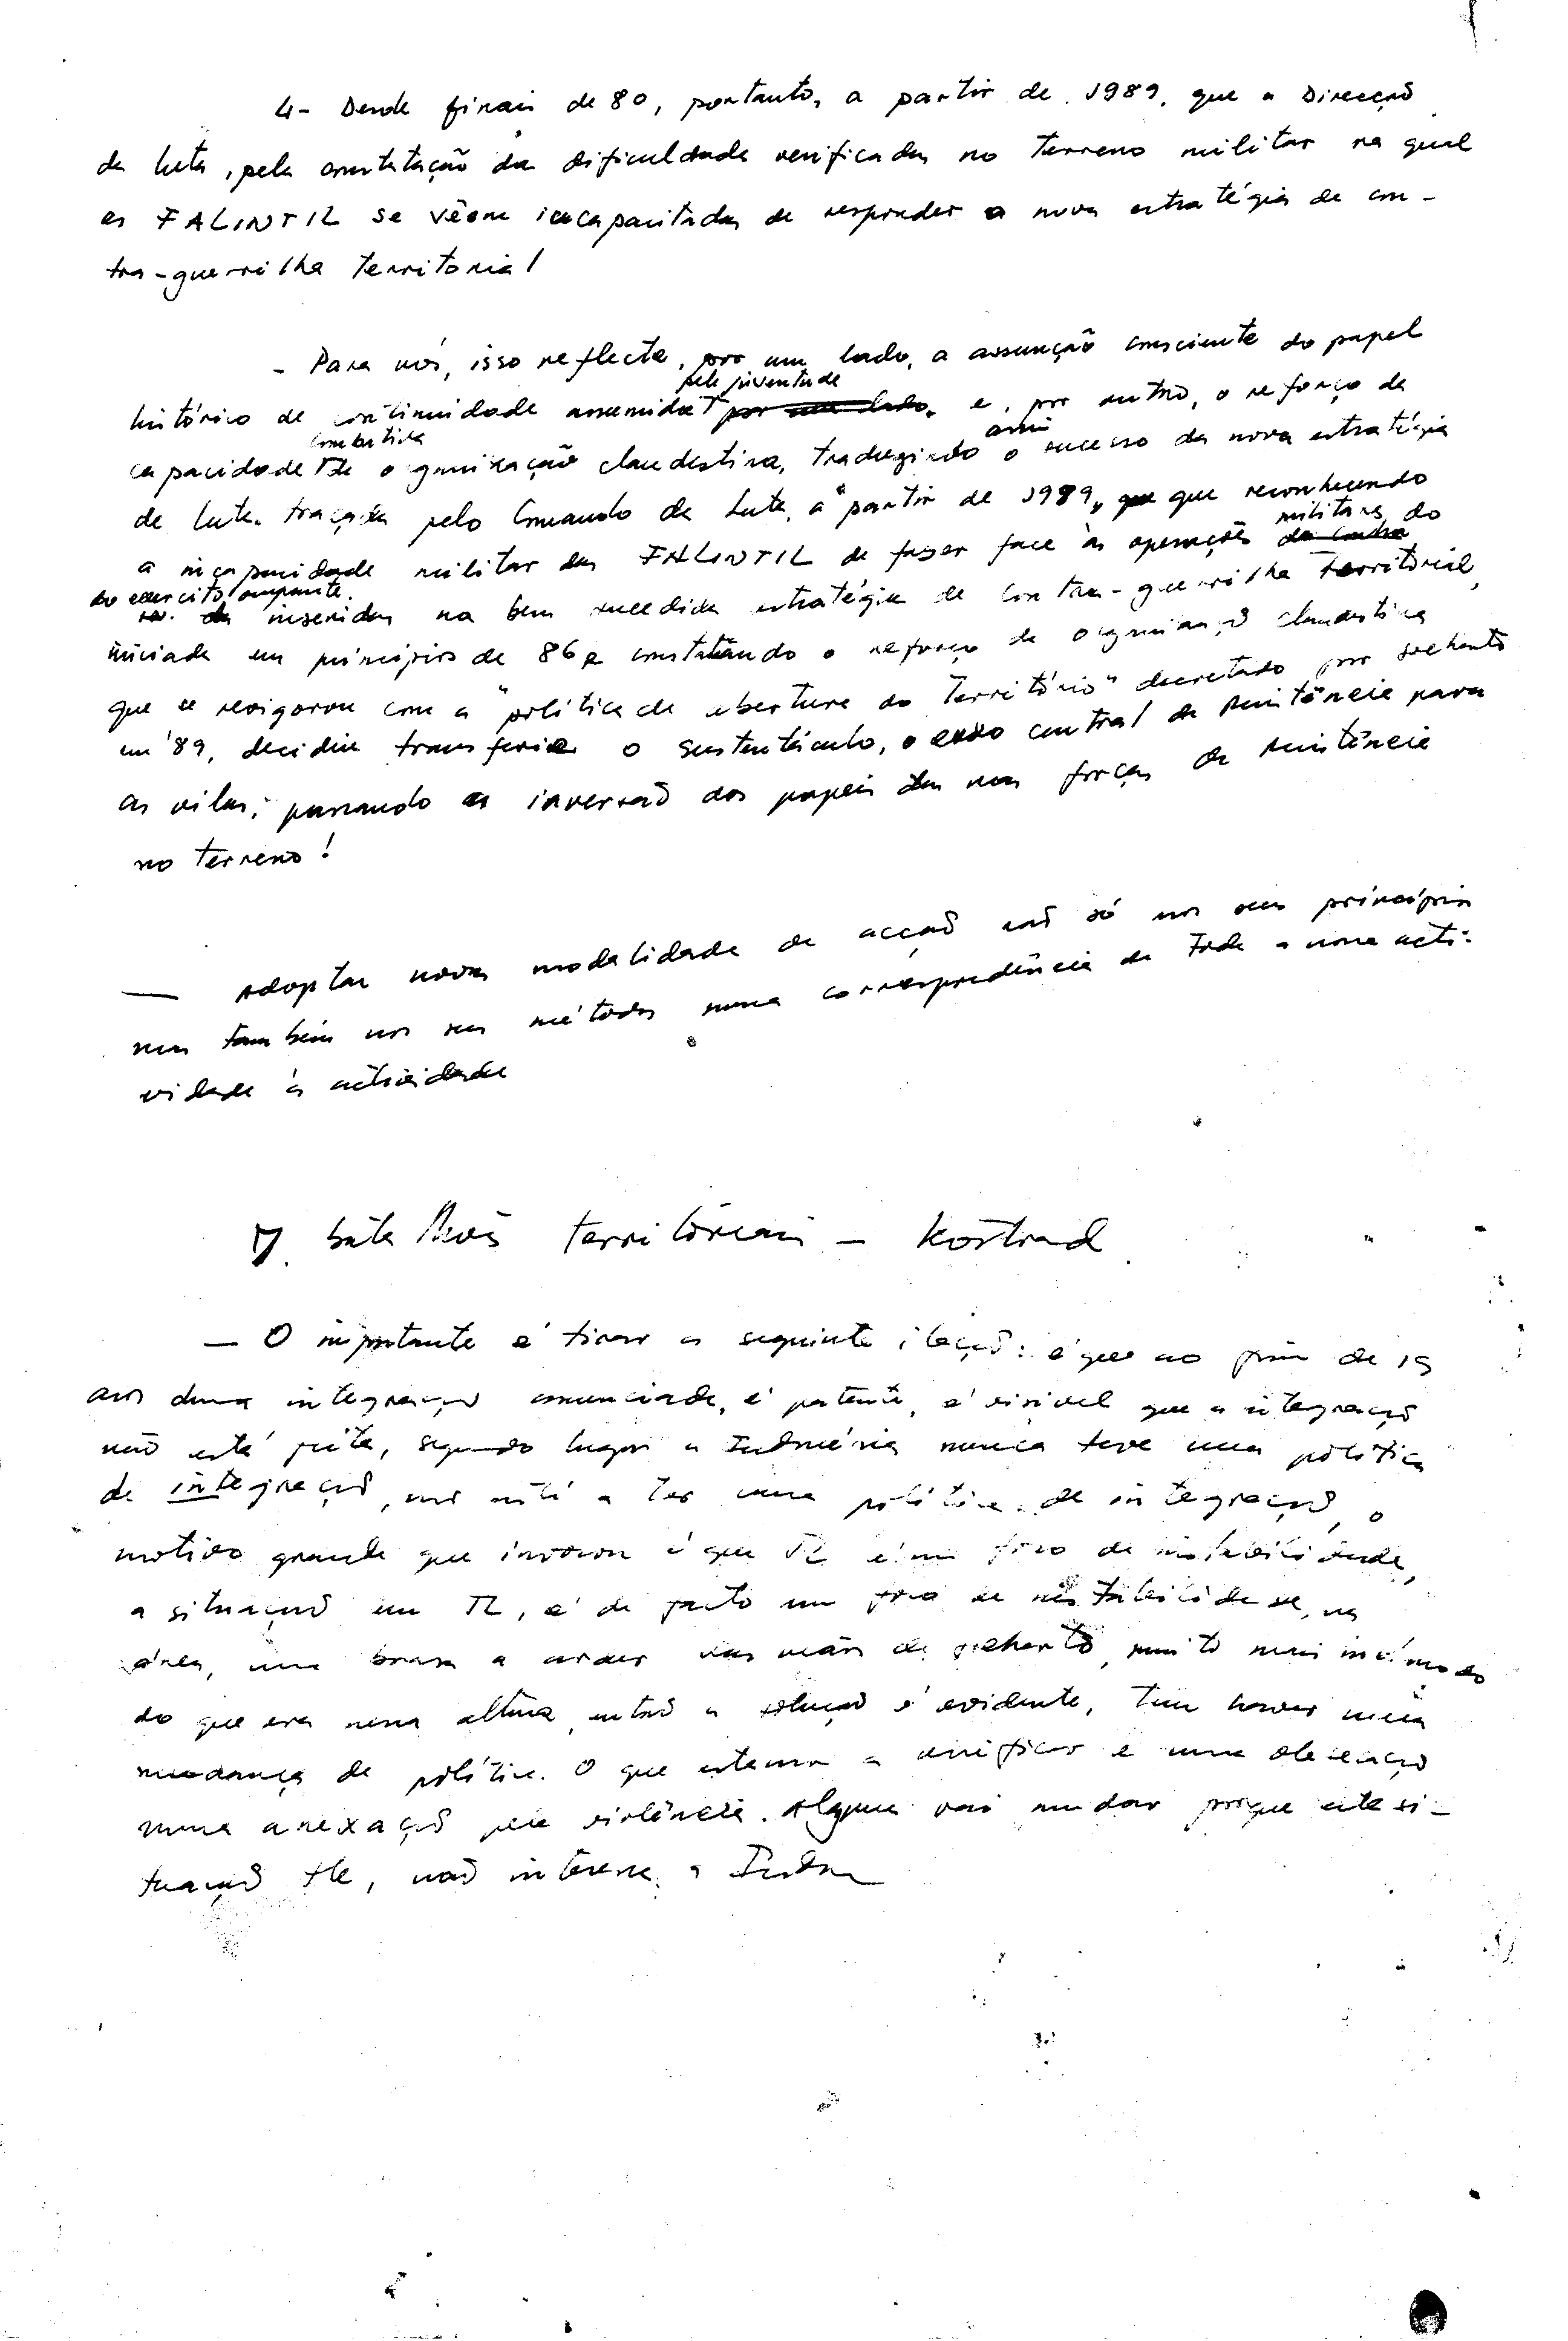 4- Desde finais de 80, portanto, a partir de 1989, que a Direcção
da luta, pela constatação da dificuldade verificadas no terreno militar na qual
as FALINTIL se vêem incapacitadas de responder a nova estratégia de con-
tra-guerrilha territorial
- Para nós, isso reflecte, por um lado, a assunção consciente do papel
pela juventude
histórico de continuidade assumida por um lado, e, por outro, o reforço da
combativa assim
capacidade de organização clandestina, traduzindo o sucesso da nova estratégia
de luta traçada pelo Comando da Luta, a partir de 1989, que que reconhecendo
militares do
a incapacidade militar das FALINTIL de fazer face às operações da contra
do exercito ocupante
inseridas na bem sucedida estratégia de contra-guerrilha territorial,
iniciada em principios de 86 e constatando o reforço da organização clandestina
que se revigorou com a "política de abertura do Território" decretado por Soeharto
em '89, decidiu transferir o sustentáculo, o eixo central da Resistência para
as vilas; passando a inversão dos papeis das nossas forças da Resistência
no terreno!
— Adoptar novas modalidade de acção não só nos seus princípios
mas também nos seus métodos numa correspondência de toda a nova acti-
vidade à actividade
7. batalhões territoriais - Kostrad
— O importante é tirar a seguinte ilação: é que ao fim de 15
anos duma integração anunciada, é patente, é visível que a integração
não está feita, segundo lugar a Indonésia nunca teve uma política
de integração, a ter uma política de integração, o
motivo grande que invocou é que TL é um foco de instabilidade,
a situação em TL, é de facto um foco de instabilidade, na
área, uma brasa a arder nas mãos de Soeharto, muito mais incómodo
do que era nessa altura, então a solução é evidente, tem haver uma
mudança de política. O que estamos a verificar é uma obsecação
numa anexação pela violência. Alguma vai mudar porque esta si-
tuação não interessa a